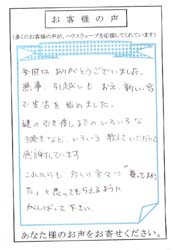 お客様の声
(多くのお客様の声が、ハウスウェーブを応援してくれています)
今回は ありがとうございました。
無事、引越しも おえ、新しい家
で生活を始めました。
鍵の引き渡しまでのいろいろな
手続きなど、いろいろ 教えていただいて
感謝しています
これからも 多くの方々に
た」と思ってもらえるように
がんばって下さい。
あなた様のお声をお寄せください。